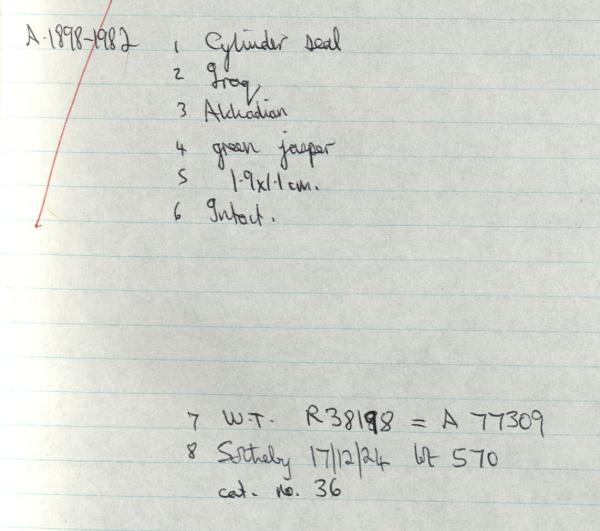 A.1898-1982 1 Cylinder seal
2 Iraq
3 Akkadian
4 green jasper
5 1.9x1.1cm.
6 Intact.
7 W.T. R38198 = A 77309
8 Sotheby 17/12/24 lot 570
cat. no. 36